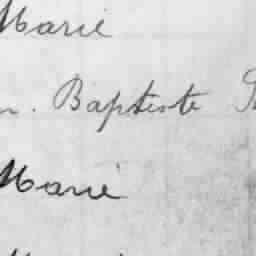 Marie
n. Baptiste
Marie